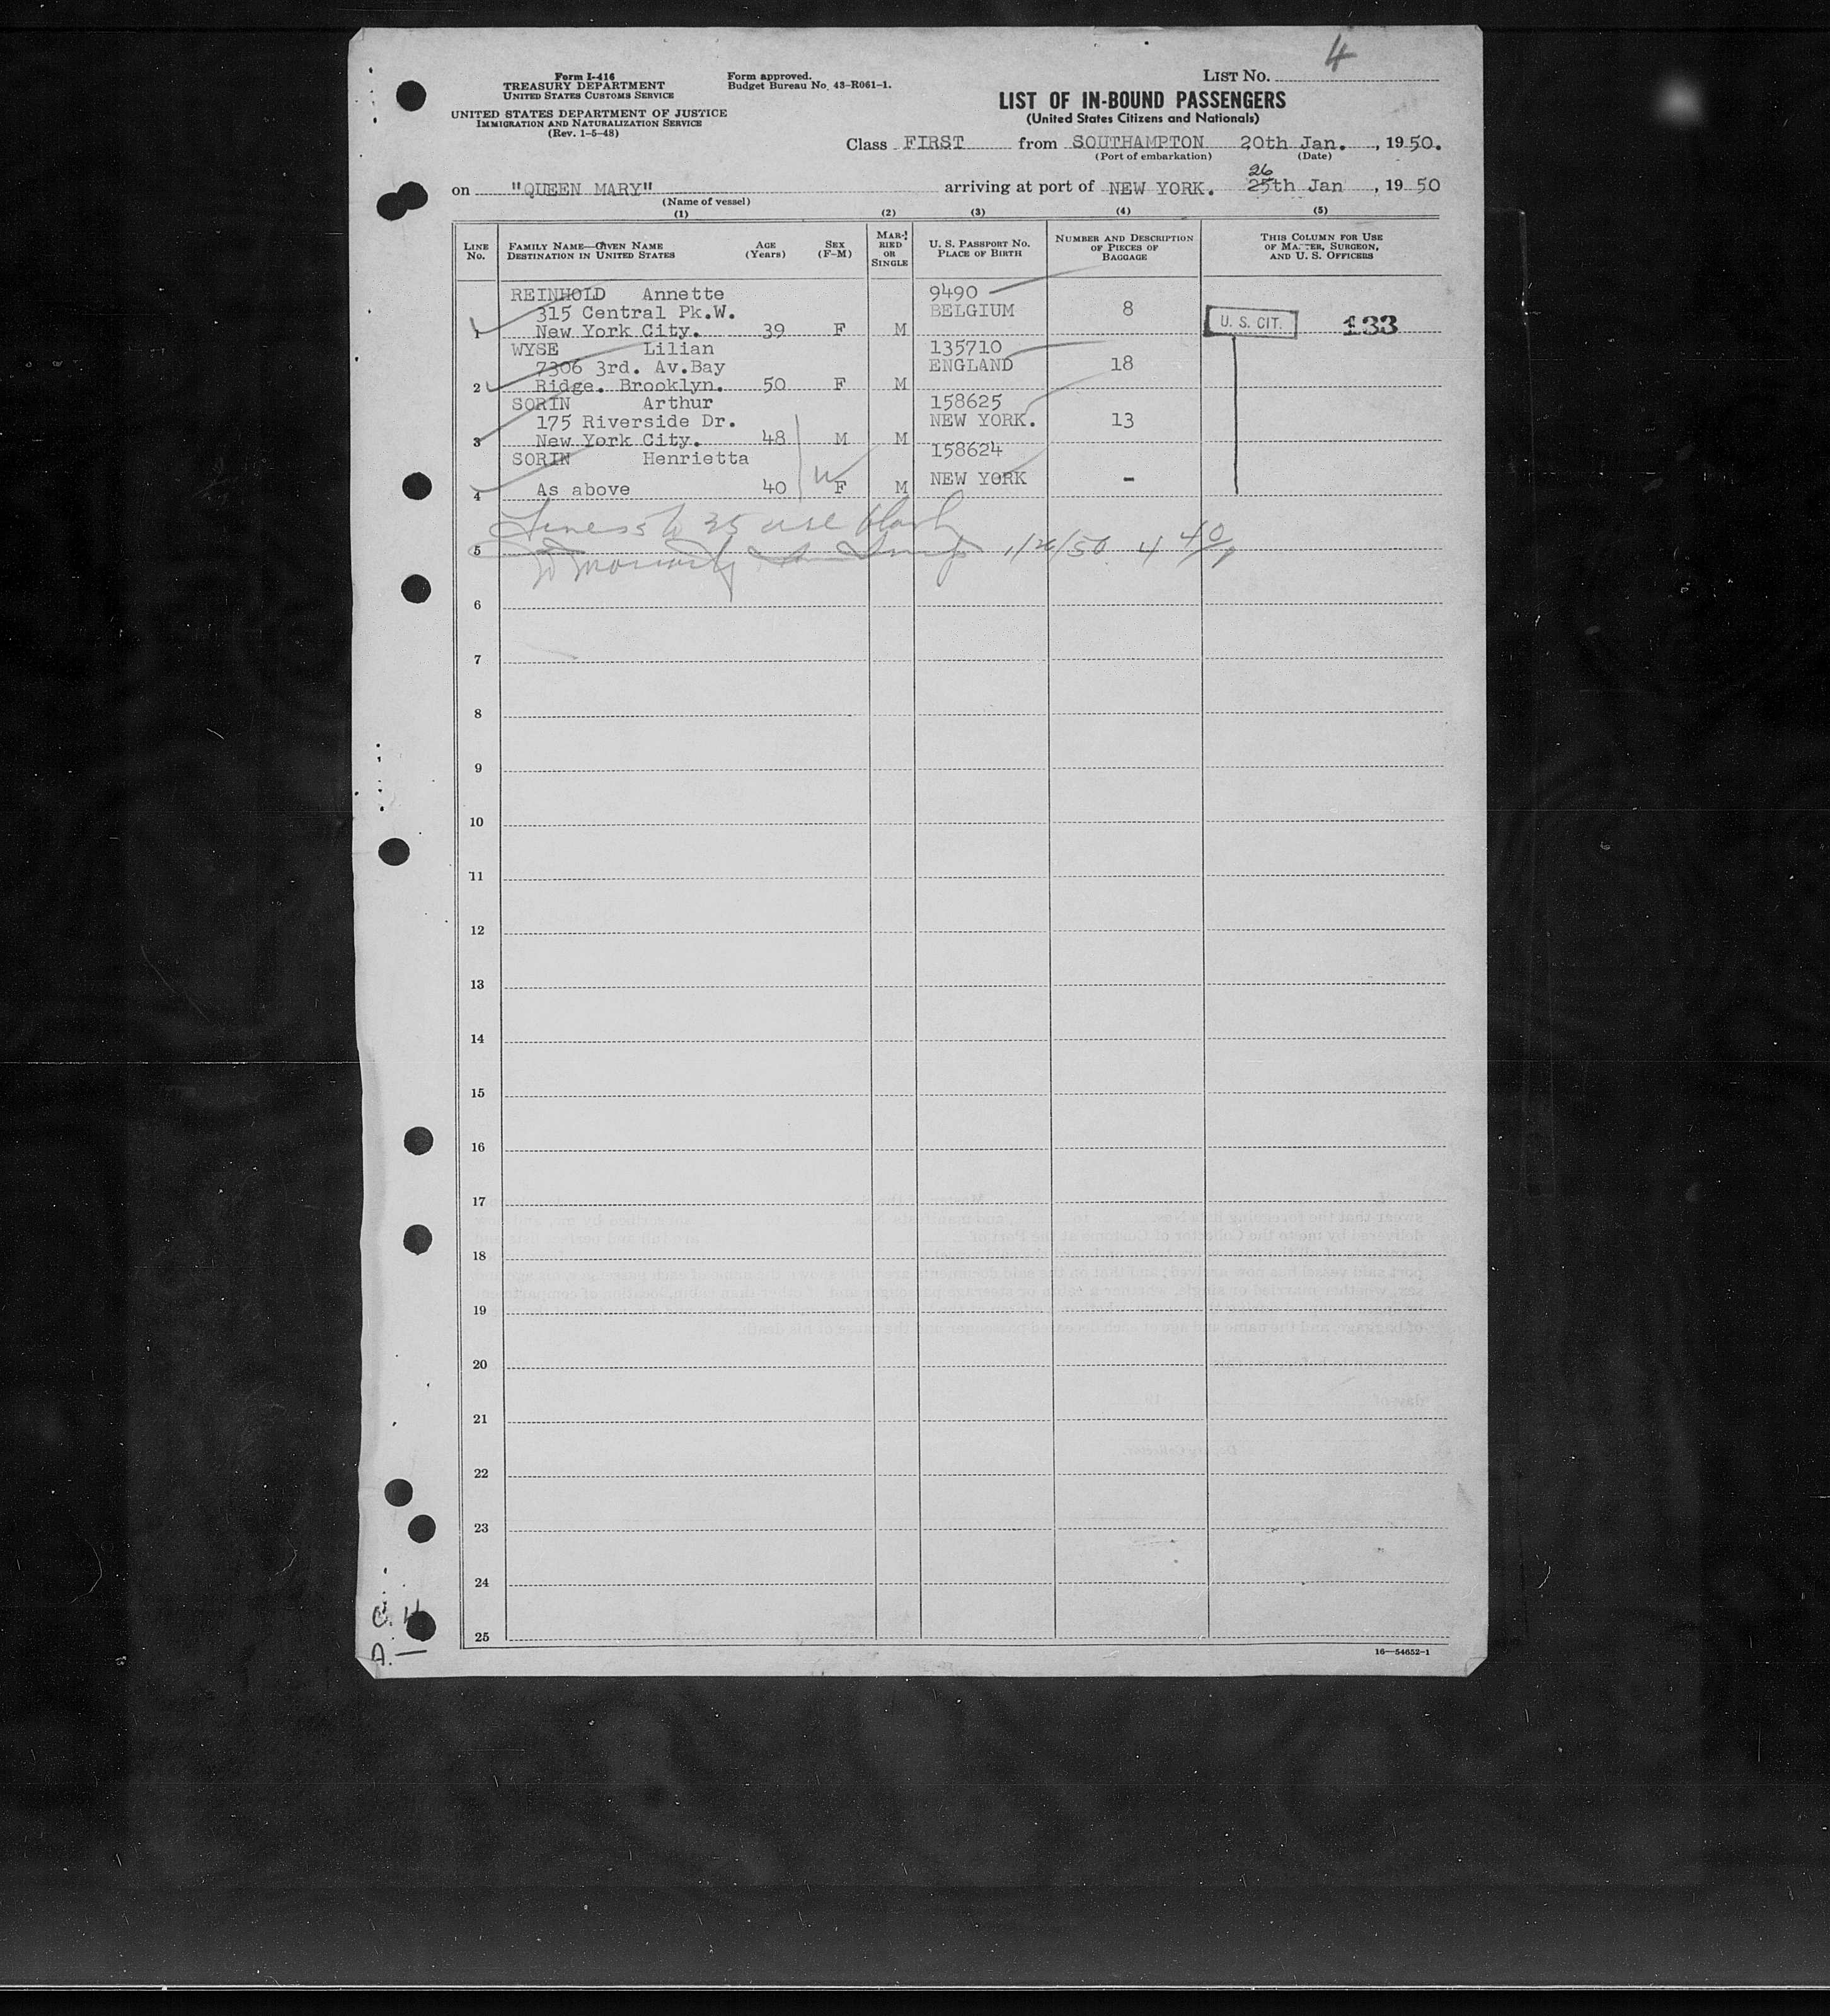 4
Form I-416
TREASURY DEPARTMENT
UNITED STATES CUSTOMS SERVICE
UNITED STATES DEPARTMENT OF JUSTICE
IMMIGRATION AND NATURALIZATION SERVICE
(Rev. 1-5-48)
Form approved.
Budget Bureau No. 43-R061-1.
LIST NO.
LIST OF IN-BOUND PASSENGERS
(United States Citizens and Nationals)
Class FIRST from SOUTHAMPTON 20th Jan. , 1950.
(Port of embarkation) (Date)
26
on "QUEEN MARY" arriving at port of NEW YORK. 25th Jan , 19 50
(Name of vessel)
(1) (2) (3) (4) (5)
LINE NO.
FAMILY NAME—GIVEN NAME
DESTINATION IN UNITED STATES
AGE (Years)
SEX (F-M)
MARRIED OR SINGLE
U. S. PASSPORT NO.
PLACE OF BIRTH
NUMBER AND DESCRIPTION OF PIECES OF BAGGAGE
THIS COLUMN FOR USE OF MASTER, SURGEON, AND U. S. OFFICERS
REINHOLD Annette 9490
315 Central Pk.W. BELGIUM 8
1 New York City. 39 F M U. S. CIT. 133
WYSE Lilian 135710
7306 3rd. Av.Bay ENGLAND 18
2 Ridge. Brooklyn. 50 F M
SORIN Arthur 158625
175 Riverside Dr. NEW YORK. 13
3 New York City. 48 M M
SORIN Henrietta 158624
W NEW YORK -
4 As above 40 F M
Lines 5 to 25 are blank
5 1/26/50 4
6
7
8
9
10
11
12
13
14
15
16
17
18
19
20
21
22
23
24
25
C. 4
A. —
16—54652-1